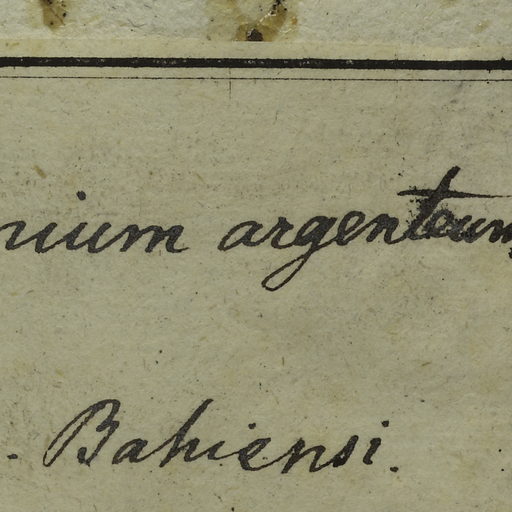 nium argenteum
. Bahiensi.